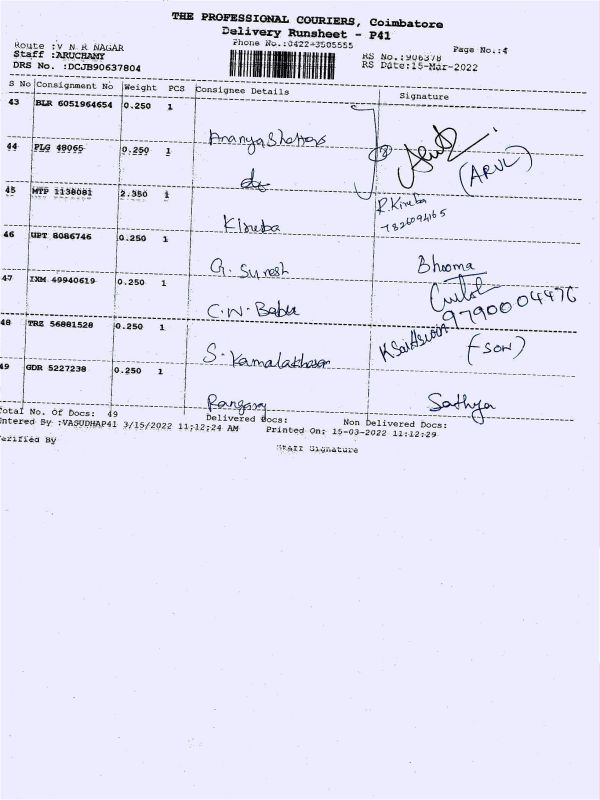 THE PROFESSIONAL COURIERS, Coimbatore
Delivery Runsheet - P41
Phone No.:0422-3505555
Page No.:4
Route :V N R NAGAR
Staff :ARUCHAMY
DRS No. :DCJB90637804
RS No.:906378
RS Date:15-Mar-2022
S No Consignment No Weight PCS Consignee Details Signature
43 BLR 6051964654 0.250 1
Ananya Shelters
44 PLG 48065 0.250 1
do
(ARUL)
45 MTP 1138081 2.350 1
Kiruba
R. Kiruba
7826094165
46 UPT 8086746 0.250 1
G. Suresh
Bhooma
47 IXM 49940619 0.250 1
C.N. Babu
9790004476
48 TRZ 56881528 0.250 1
S. Kamalakhasan
(SON)
49 GDR 5227238 0.250 1
Rangaraj
Sathya
Total No. Of Docs: 49 Delivered Docs: Non Delivered Docs:
Entered By :VASUDHAP41 3/15/2022 11:12:24 AM Printed On: 15-03-2022 11:12:29
Verified By
Staff Signature